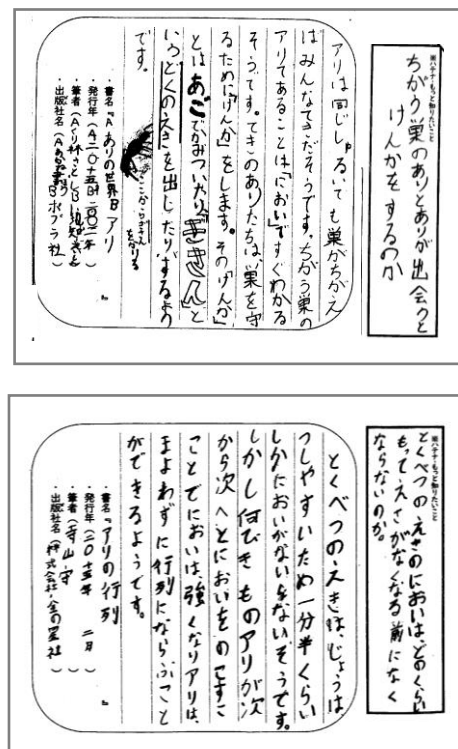 ※ハテナ・もっと知りたいこと
ちがう巣のありとありが出会うと
けんかをするのか
アリは同じしゅるいでも巣がちがえ
ばみんなてきだそうです。ちがう巣の
アリであることは「におい」ですぐわかる
そうです。てきのありたちは、巣を守
るために「けんか」をします。その「けんか」
とはあごでかみついたり、「ぎさん」と
いうどくのえきを出したりするよう
です。
・書名『Aありの世界 Bアリ
』
・発行年(
・筆者(
・出版社名(
※ハテナ・もっと知りたいこと
とくべつのえきのにおいは、どのくらい
もって、えさがなくなる前になく
ならないのか。
とくべつのえきは、じょうは
つしやすいため一分半くらい
しかにおいがないそうです。
しかし何びきものアリが次
から次へとにおいをのこすこ
とでにおいは、強くなりアリは、
まよわずに行列にならぶこと
ができるようです。
・書名『アリの行列
』
・発行年(二〇十五年 二月)
・筆者(寺山守)
・出版社名(株式会社・金の星社)